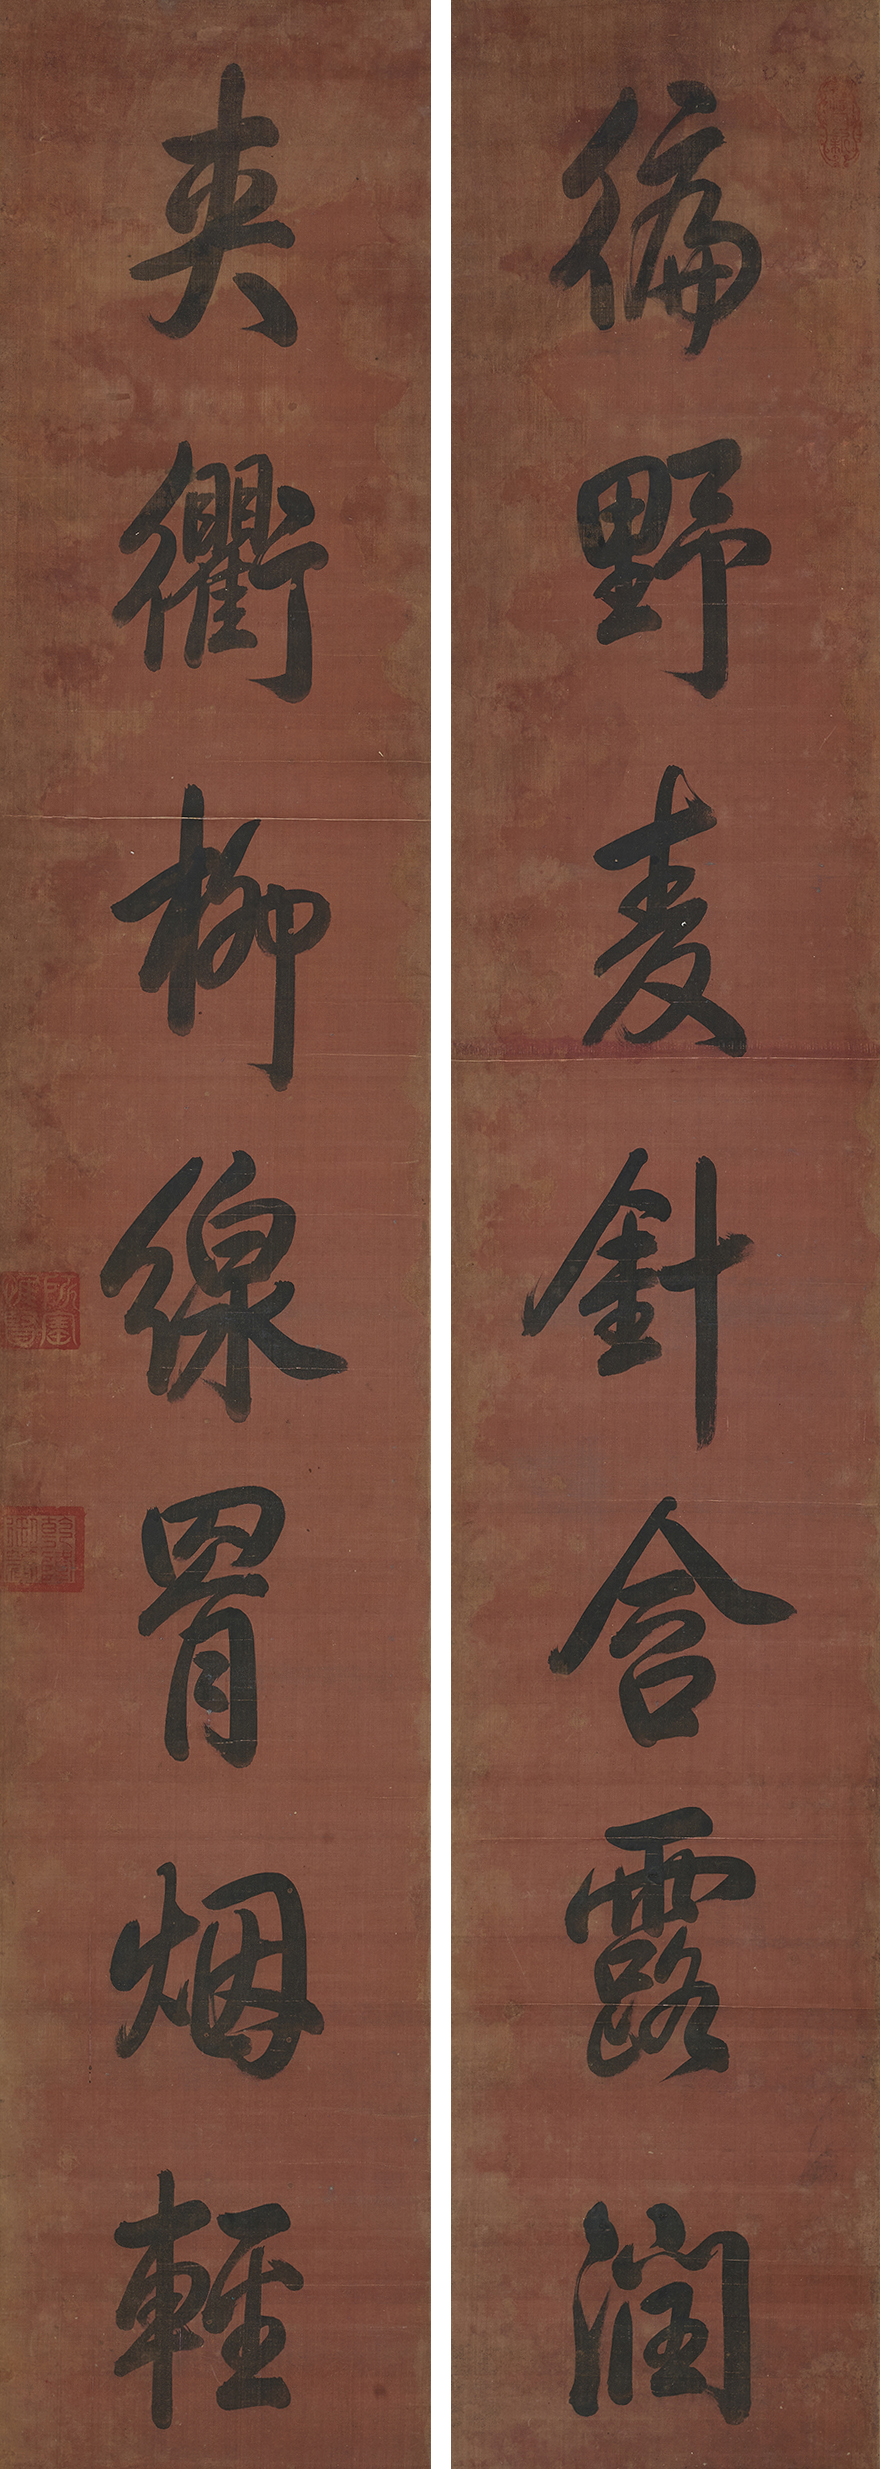 徧野麦針含露潤
夾衢柳線罥烟輕